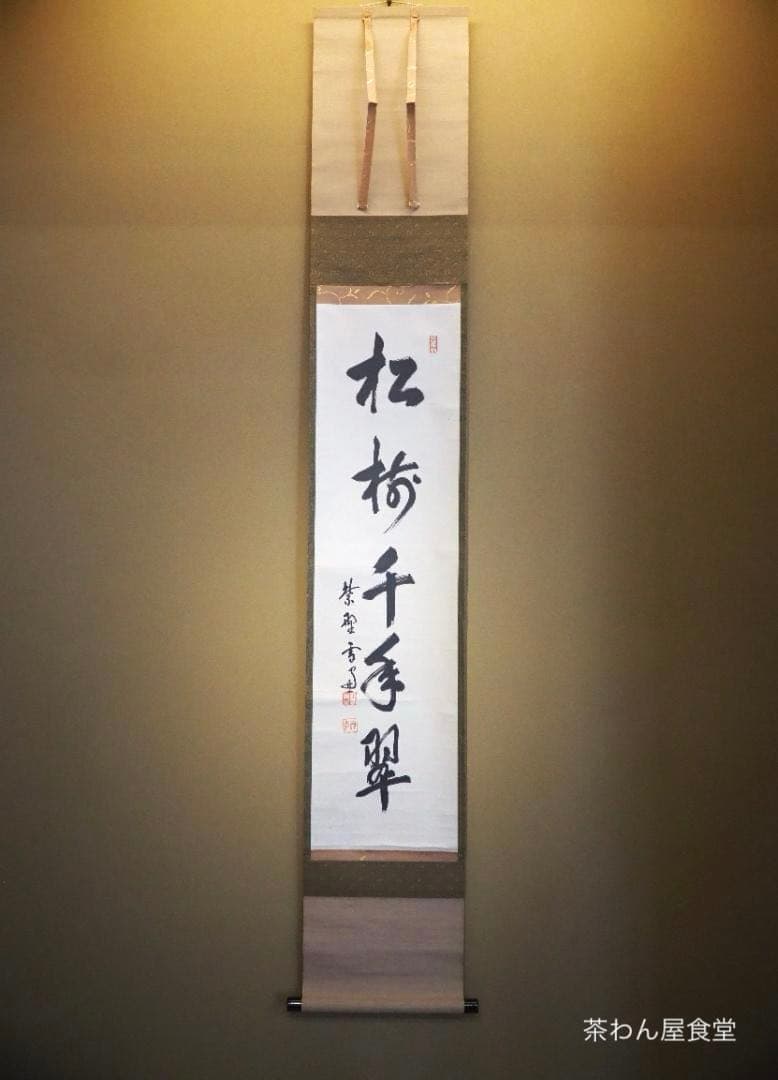 松樹千年翠
紫野
茶わん屋食堂